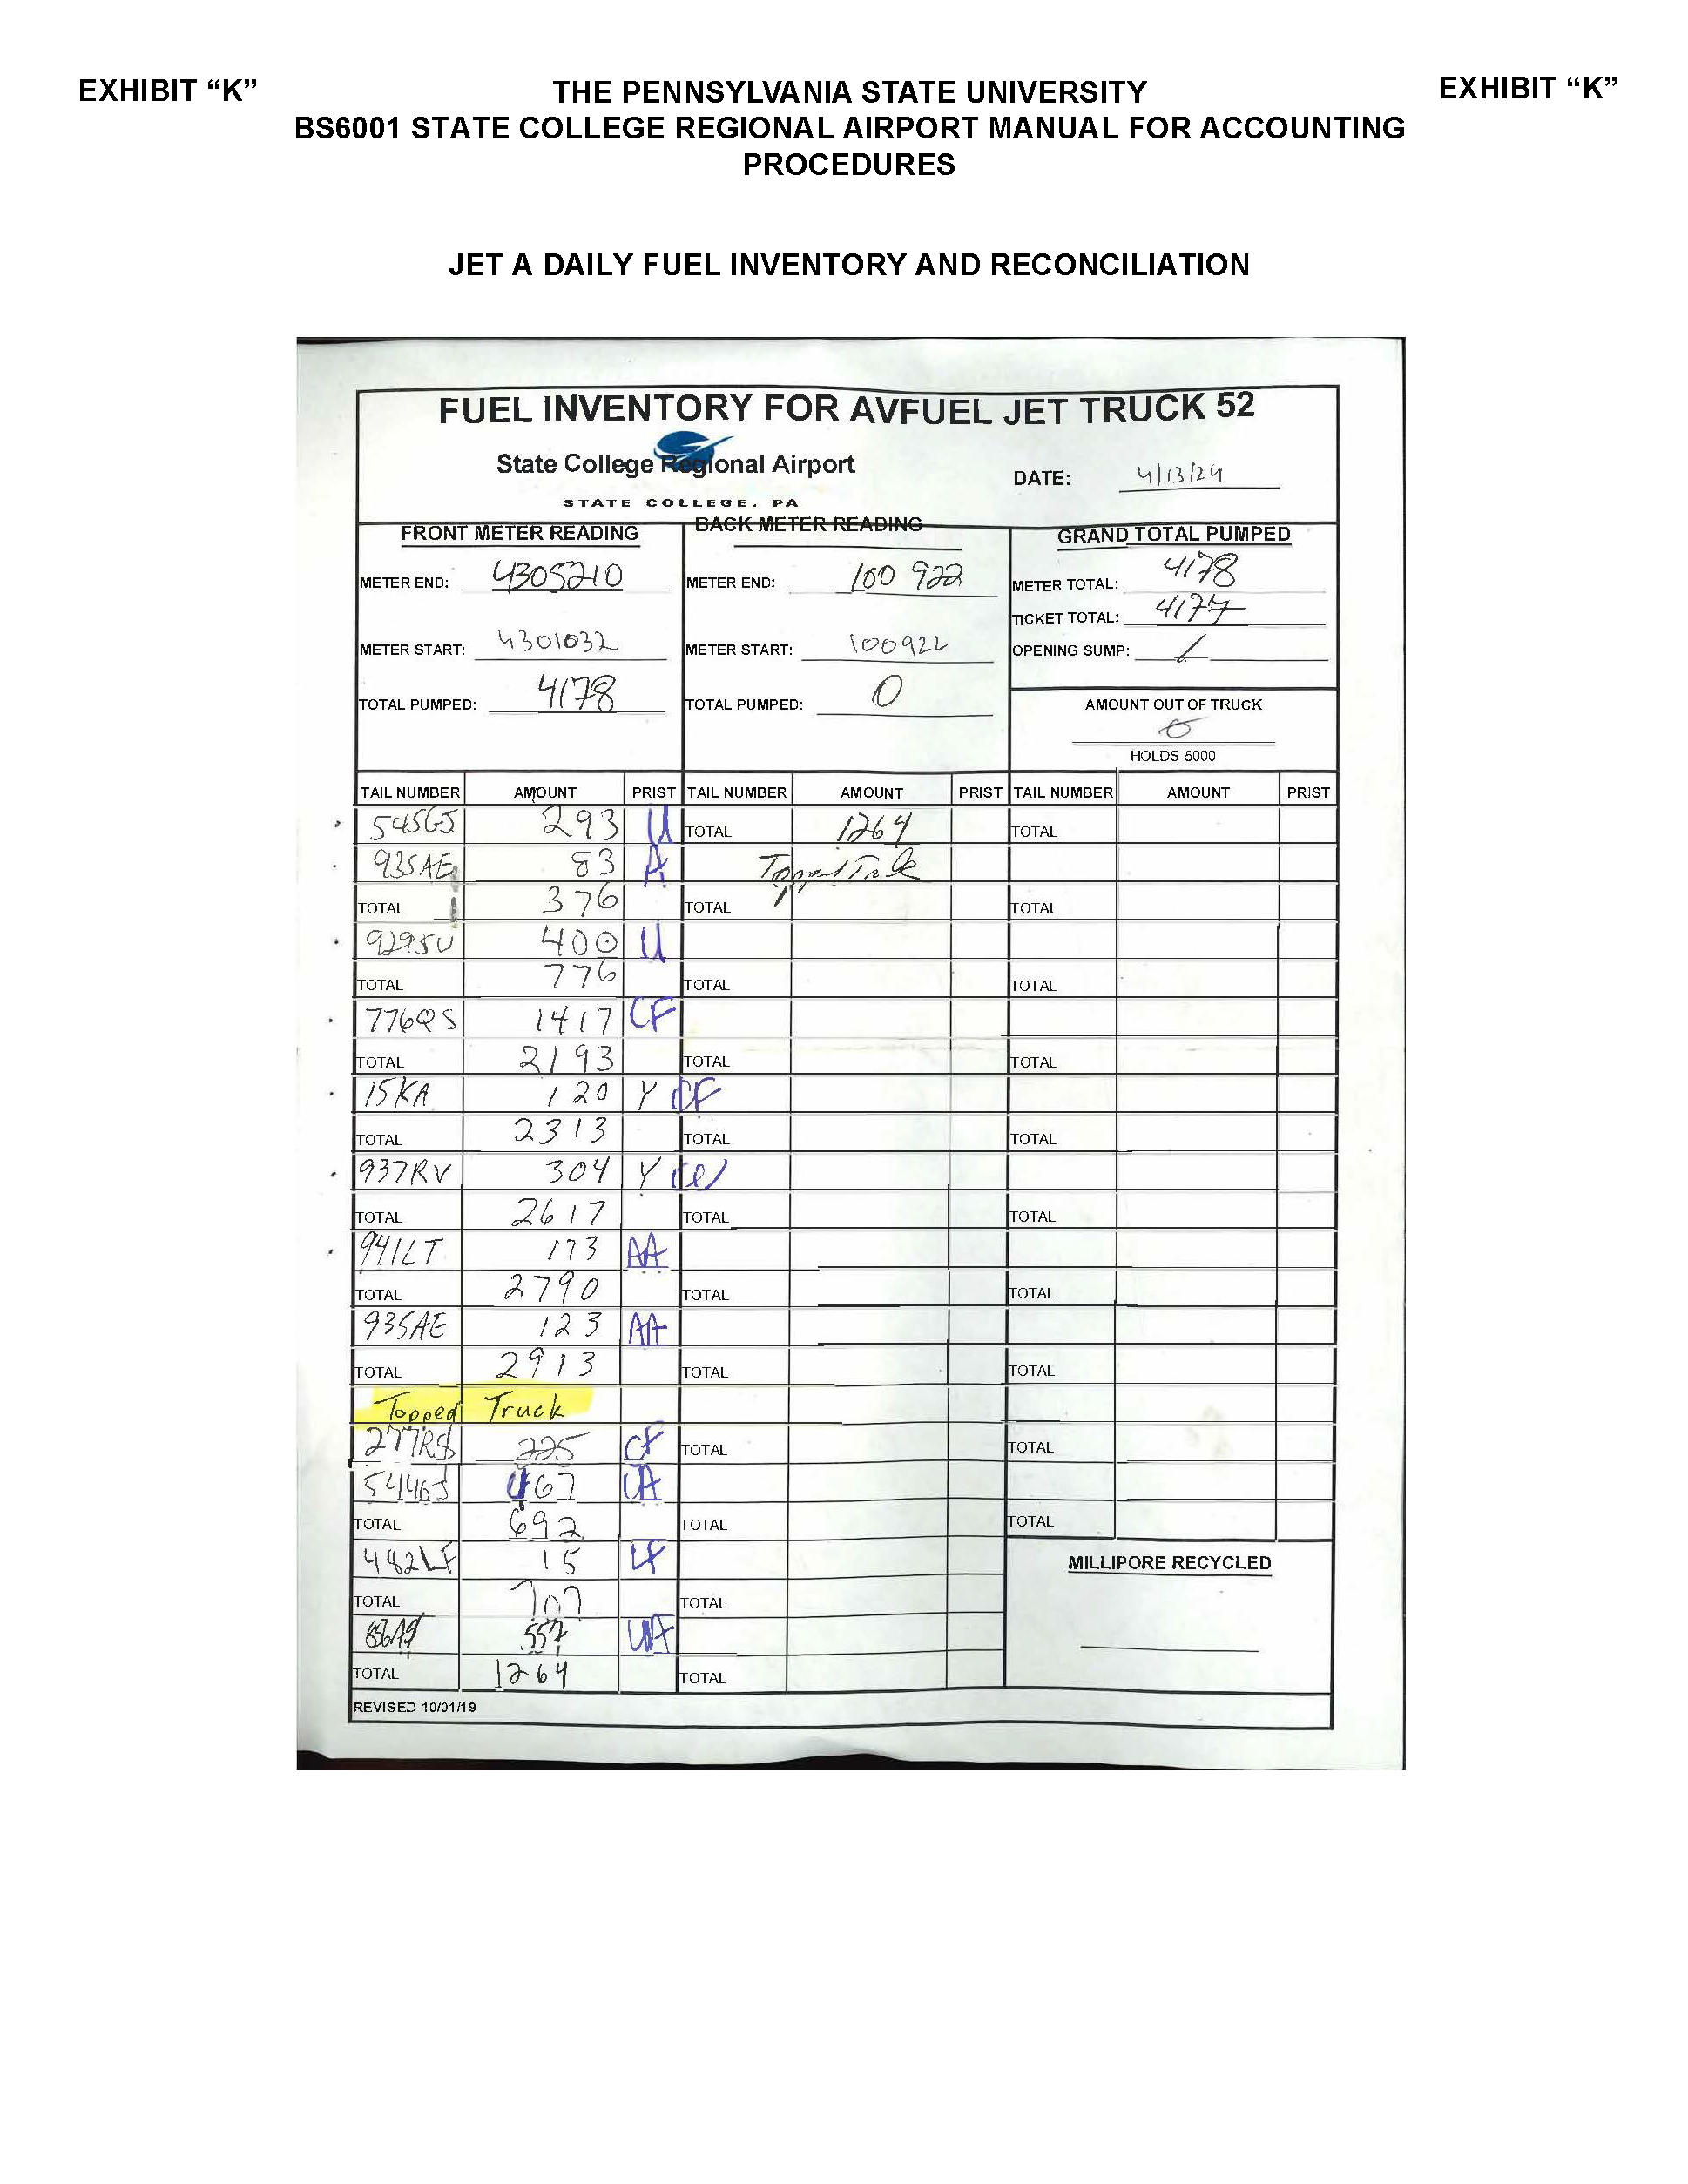 EXHIBIT “K”
THE PENNSYLVANIA STATE UNIVERSITY
EXHIBIT “K”
BS6001 STATE COLLEGE REGIONAL AIRPORT MANUAL FOR ACCOUNTING
PROCEDURES
JET A DAILY FUEL INVENTORY AND RECONCILIATION
FUEL INVENTORY FOR AVFUEL JET TRUCK 52
State College Regional Airport
STATE COLLEGE, PA
DATE: 4/13/24
FRONT METER READING
METER END: 4305210
METER START: 4301032
TOTAL PUMPED: 4178
BACK METER READING
METER END: 100 922
METER START: 100922
TOTAL PUMPED: 0
GRAND TOTAL PUMPED
METER TOTAL: 4178
TICKET TOTAL: 4177
OPENING SUMP: 1
AMOUNT OUT OF TRUCK
0
HOLDS 5000
TAIL NUMBER AMOUNT PRIST TAIL NUMBER AMOUNT PRIST TAIL NUMBER AMOUNT PRIST
545GJ 293 U TOTAL 1264 TOTAL
935AE 83 A Topped Truck
TOTAL 376 TOTAL TOTAL
929SU 400 U
TOTAL 776 TOTAL TOTAL
776QS 1417 CF
TOTAL 2193 TOTAL TOTAL
15KA 120 Y CF
TOTAL 2313 TOTAL TOTAL
937RV 304 Y
TOTAL 2617 TOTAL TOTAL
941LT 173 AA
TOTAL 2790 TOTAL TOTAL
935AE 123 AA
TOTAL 2913 TOTAL TOTAL
Topped Truck
277RS 225 CF TOTAL TOTAL
544GJ 467 UA
TOTAL 692 TOTAL TOTAL
482LF 15 LF
TOTAL 707 TOTAL
557 UA
TOTAL 1264 TOTAL
MILLIPORE RECYCLED
REVISED 10/01/19